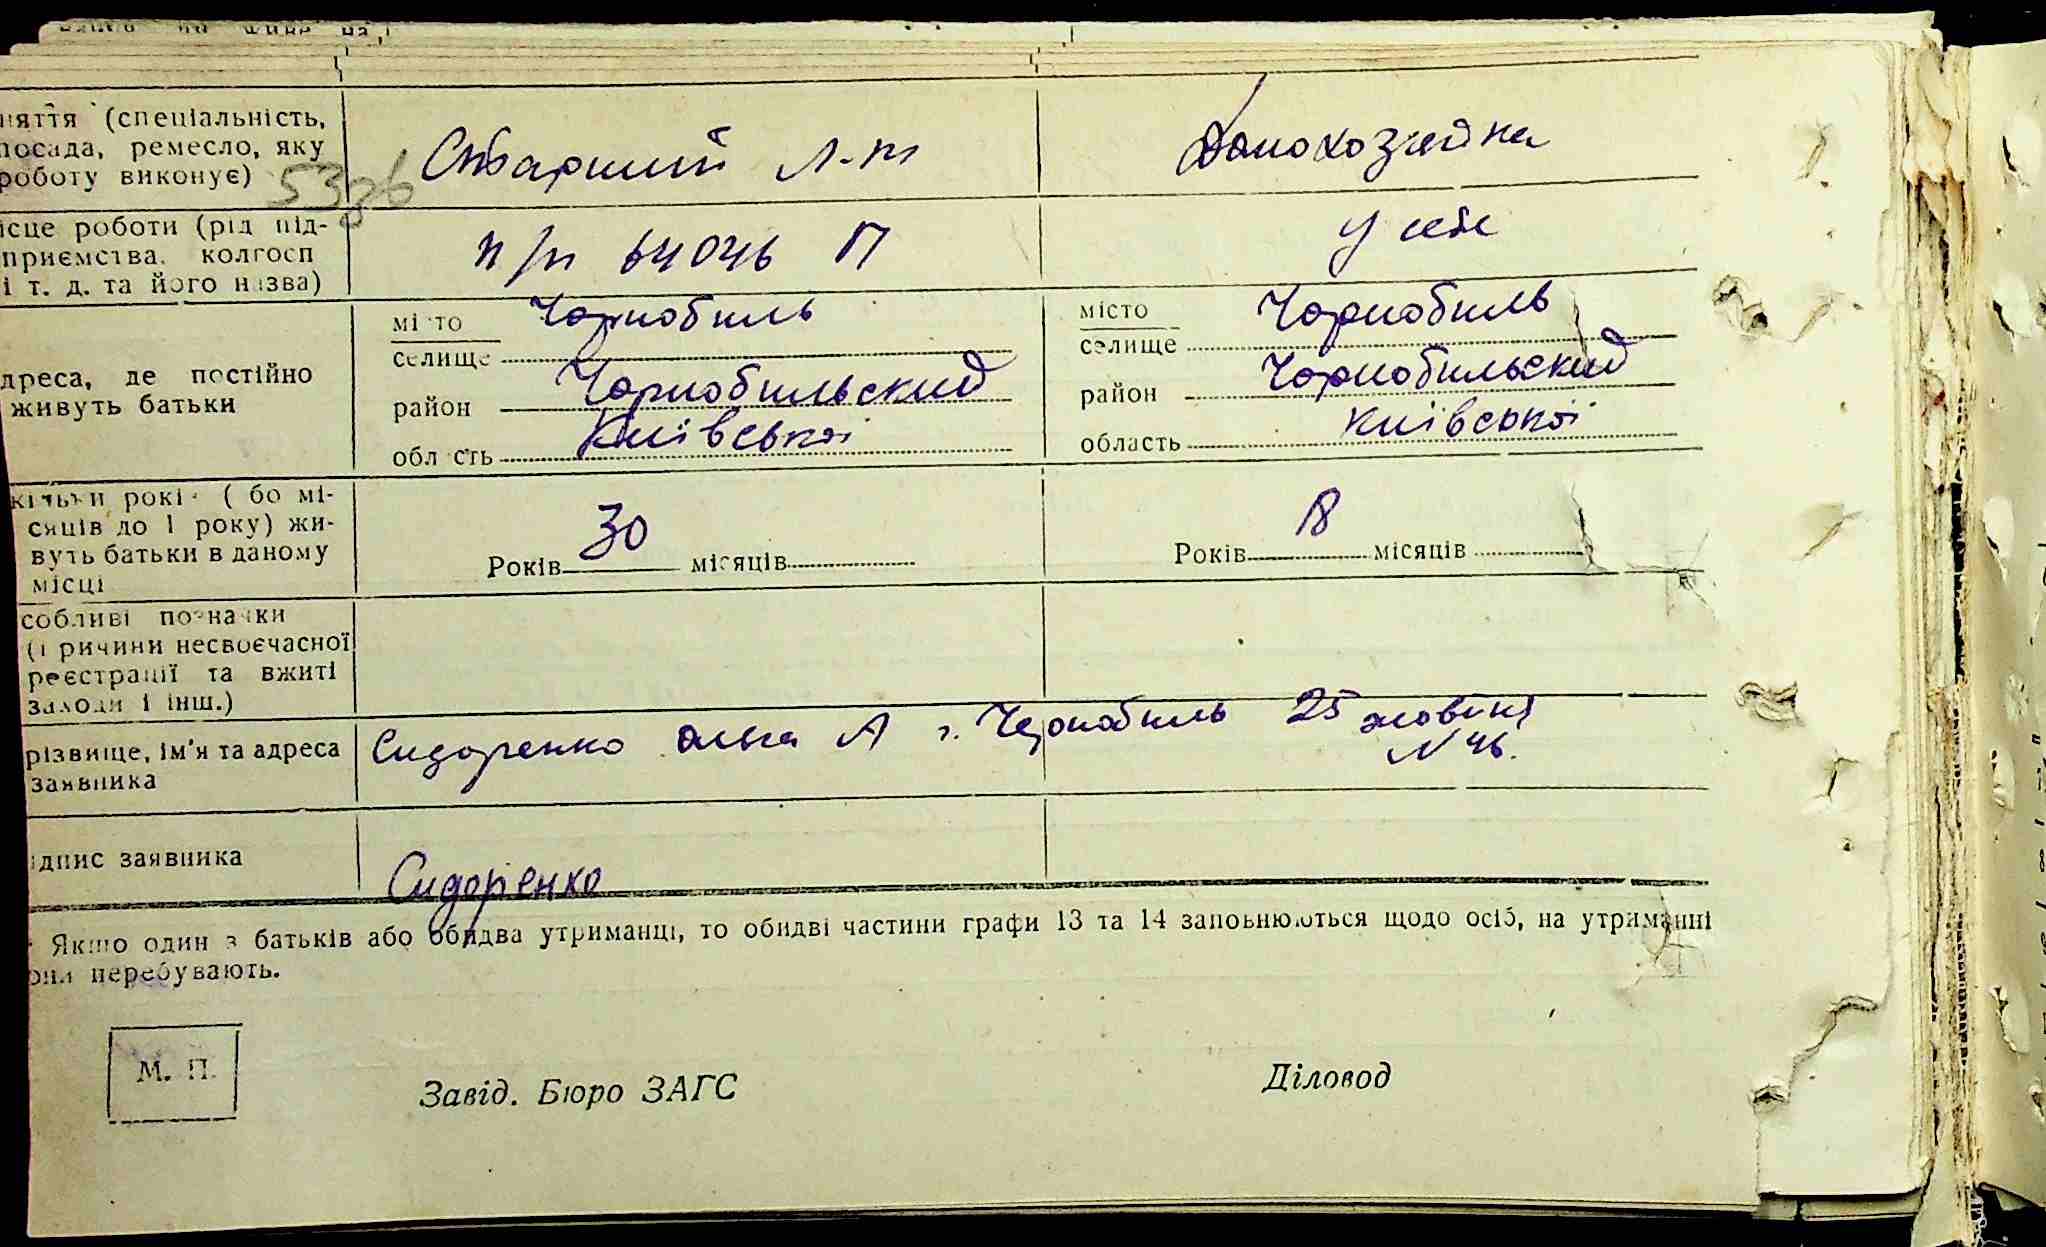 няття (спеціальність,
посада, ремесло, яку
роботу виконує)
Старший л-т
Домохозяйка
ісце роботи (рід під-
приємства, колгосп
і т. д. та його назва)
п/п 64046 П
у себе
дреса, де постійно
живуть батьки
місто Чорнобиль
селище
район Чорнобильский
область Київської
місто Чорнобиль
селище
район Чорнобильский
область Київської
кільки років ( бо мі-
сяців до 1 року) жи-
вуть батьки в даному
місці
Років 30 місяців
Років 18 місяців
собливі позначки
(причини несвоєчасної
реєстрації та вжиті
заходи і інш.)
різвище, ім'я та адреса
заявника
Сидоренко Ольга А г. Чернобиль 25 жовтня
N 46.
ідпис заявника
Сидоренко
Якщо один з батьків або обидва утриманці, то обидві частини графи 13 та 14 заповнюються щодо осіб, на утриманні
они перебувають.
М. П.
Завід. Бюро ЗАГС
Діловод